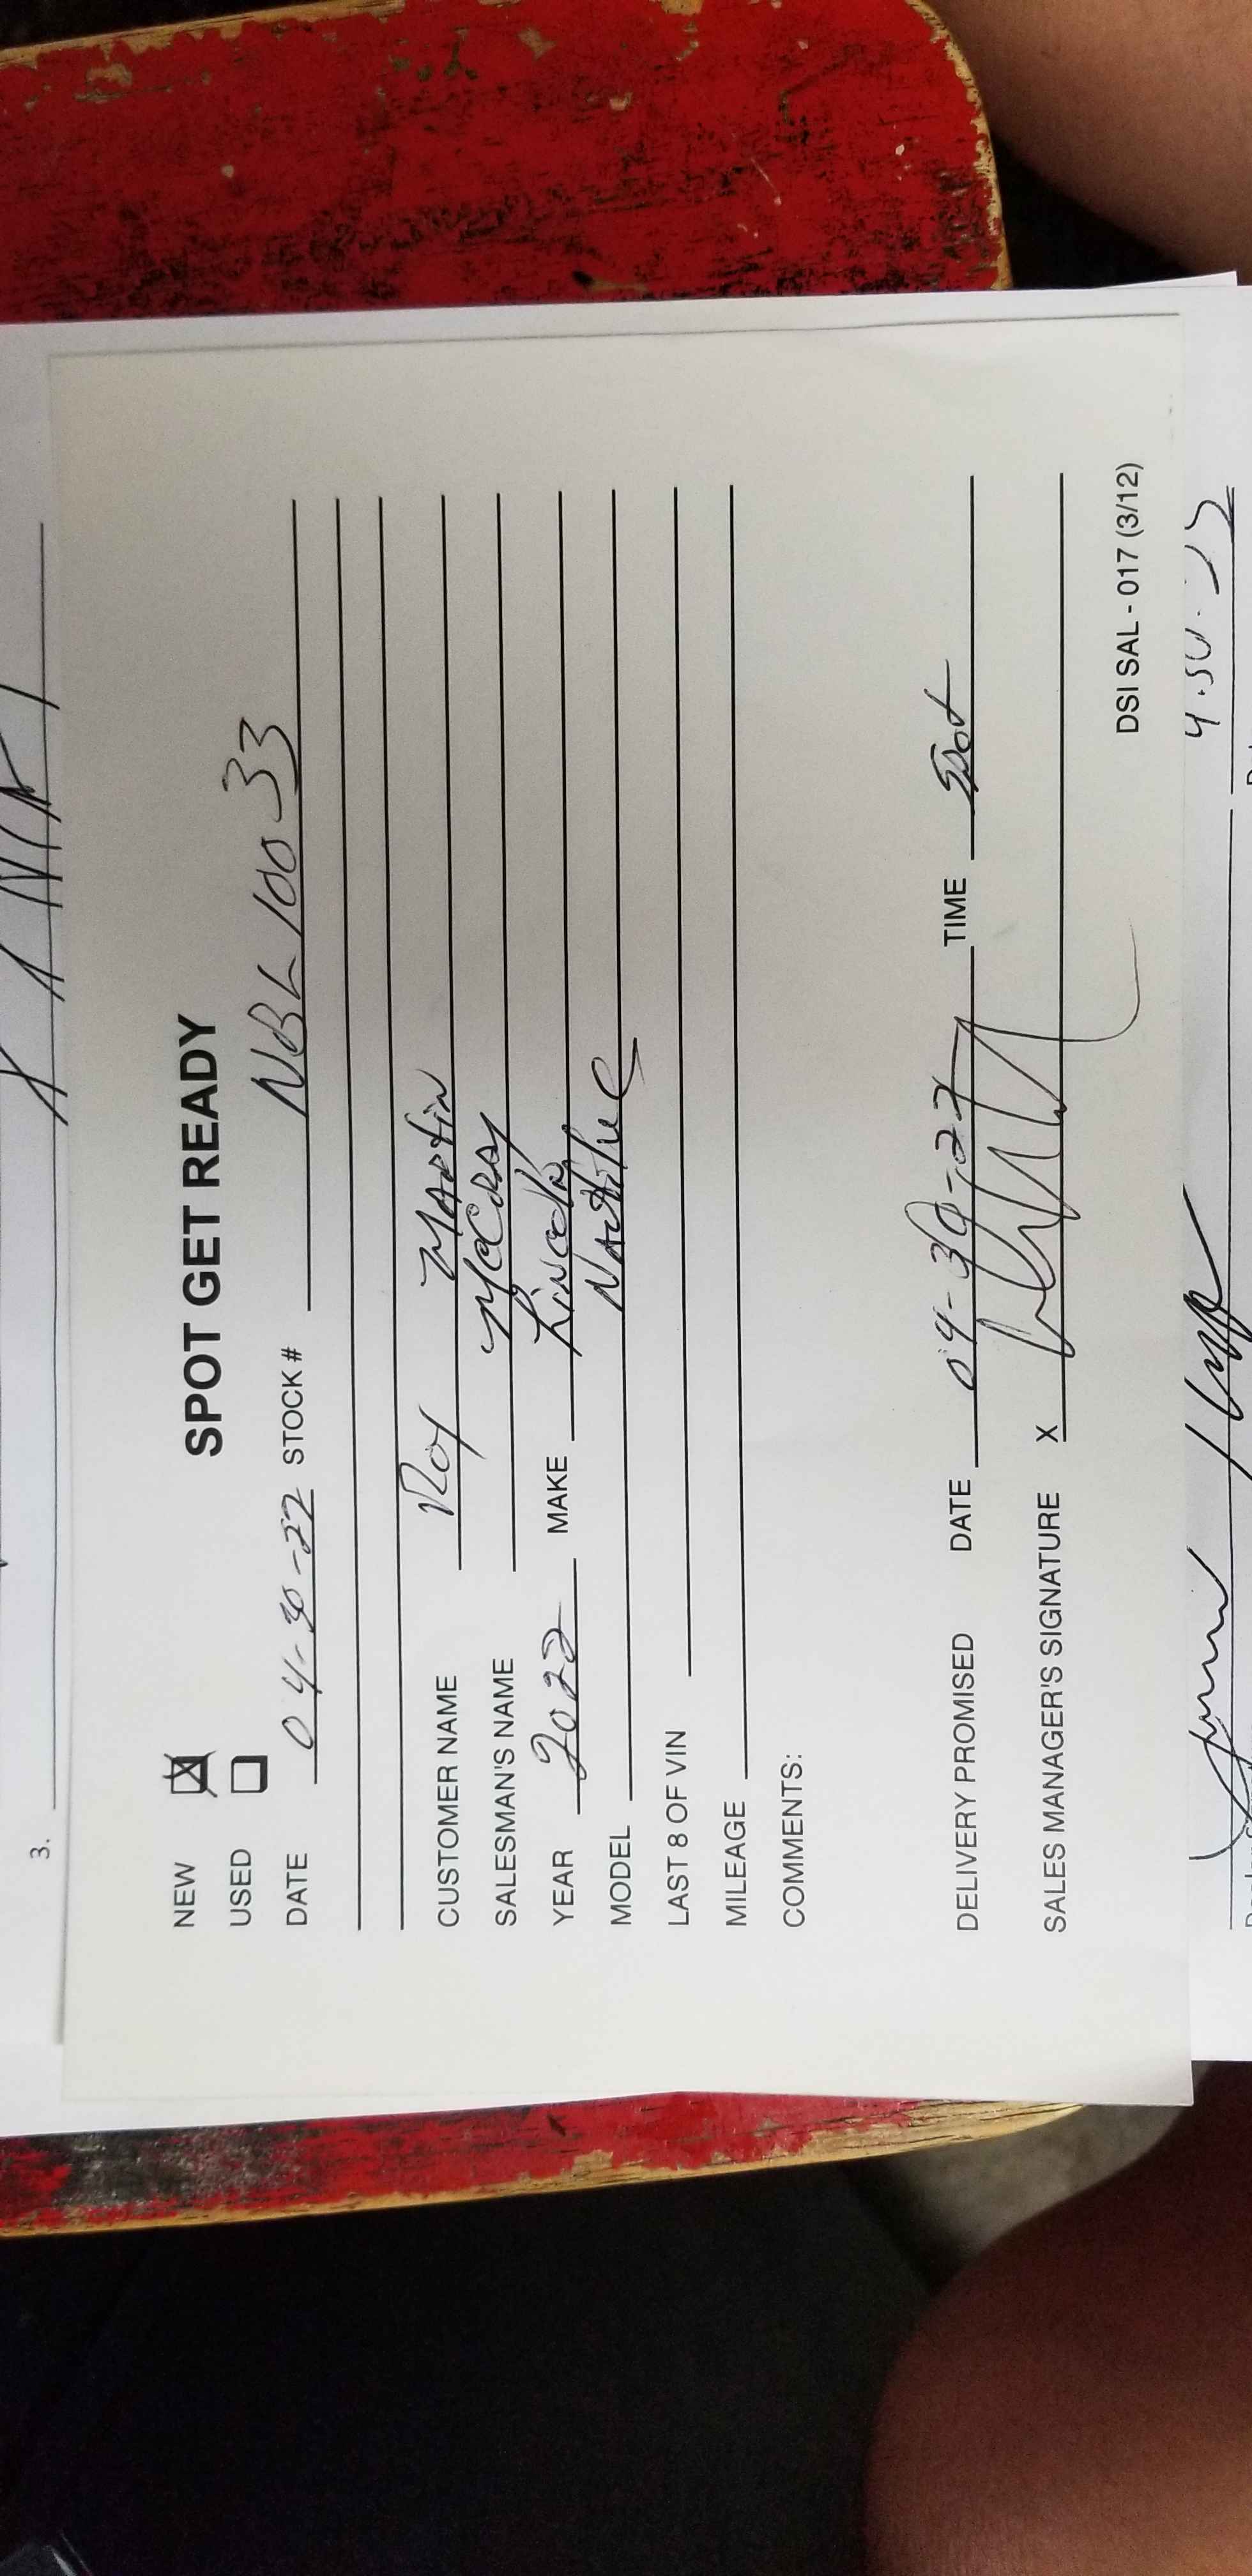 3.
SPOT GET READY
NEW ☒
USED ☐
DATE 04-30-22 STOCK # NBL10033
CUSTOMER NAME Roy Martin
SALESMAN'S NAME McCray
YEAR 2022 MAKE Lincoln
MODEL
LAST 8 OF VIN
MILEAGE
COMMENTS:
DELIVERY PROMISED DATE 04-30-22 TIME Spot
SALES MANAGER'S SIGNATURE X
DSI SAL - 017 (3/12)